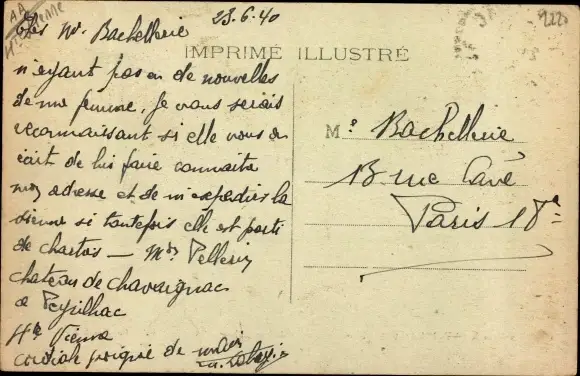 23.6.40
Mr Bachellerie
IMPRIMÉ ILLUSTRÉ
n'ayant pas eu de nouvelles
de ma femme, je vous serais
reconnaissant si elle vous é
crit de lui faire connaitre
mon adresse et de m'expédier la
sienne si toutefois elle est partie
de Chartres — Mr Pellerin
chateau de Chavaignac
a Peyilhac
Hte Vienne
cordiale poignée de main
Mr Bachellerie
13 rue Cavé
Paris 18e